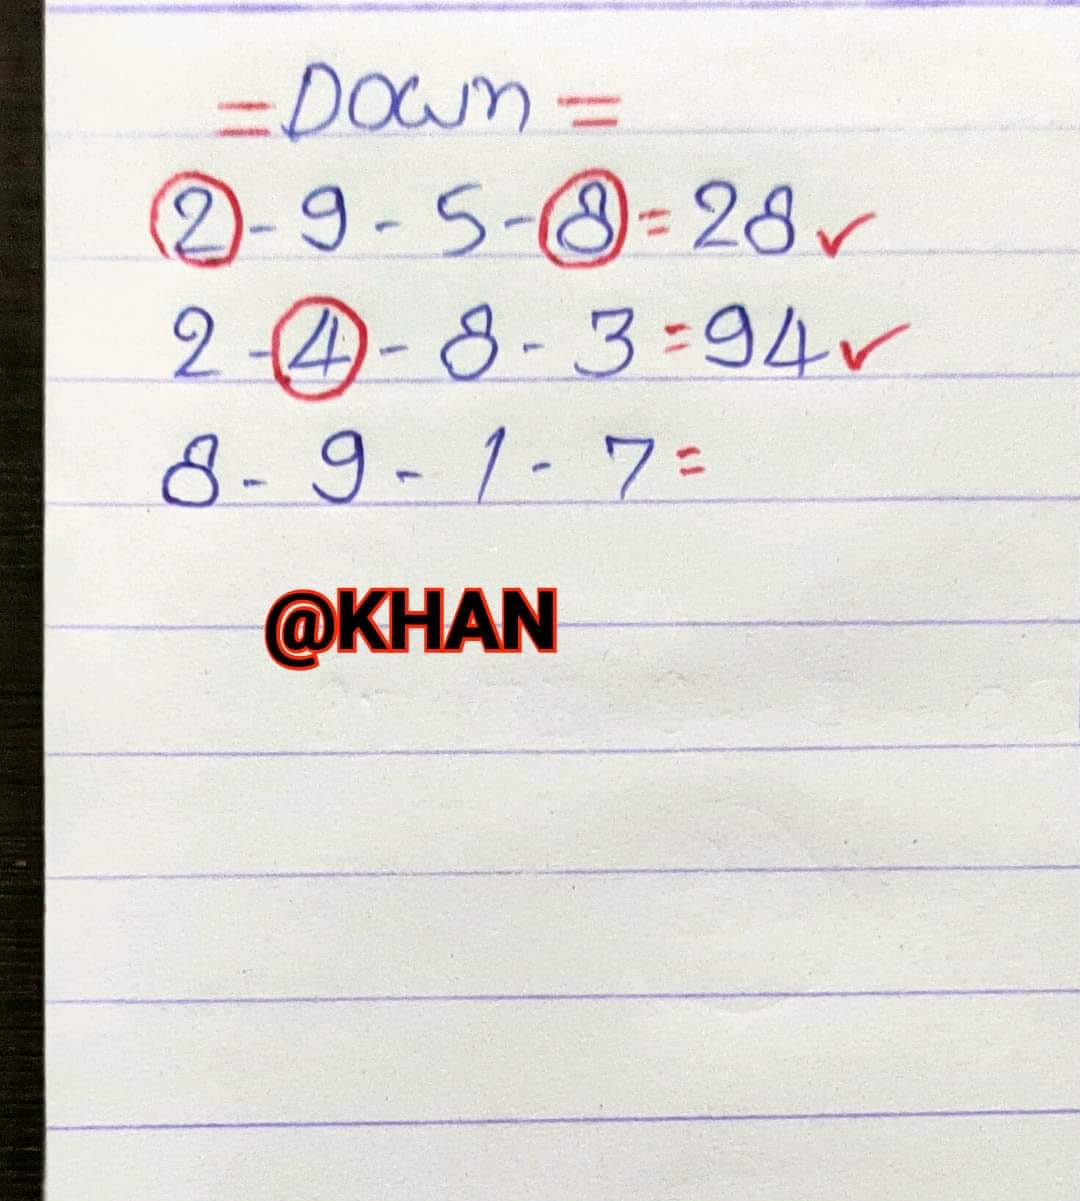 = Down =
2 - 9 - 5 - 8 = 28 ✓
2 - 4 - 8 - 3 = 94 ✓
8 - 9 - 1 - 7 =
@KHAN